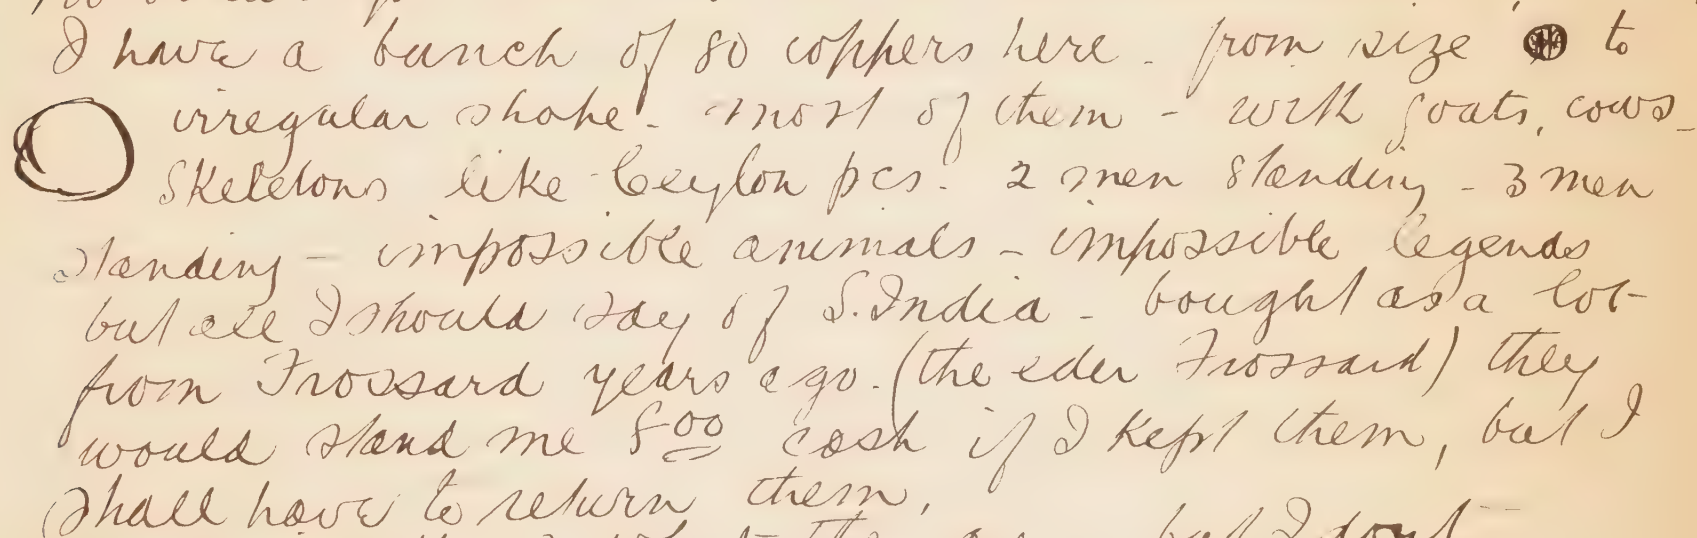 I have a bunch of 80 coppers here - from size to
irregular shape - most of them - with goats, cows -
Skeletons like Ceylon pcs. 2 men standing - 3 men
standing - impossible animals - impossible legends
but all I should say of S. India - bought as a lot
from Frossard years ago. (the eder Frossard) they
would stand me 8 00 cash if I kept them, but I
shall have to return them,
but I dont